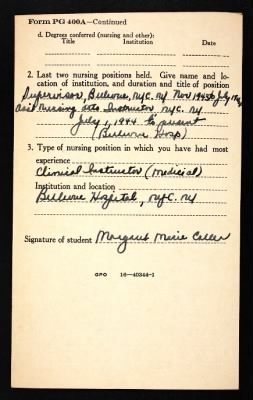 Form PG 400A—Continued
d. Degrees conferred (nursing and other):
Title Institution Date
2. Last two nursing positions held. Give name and lo-
cation of institution, and duration and title of position
Supervisor, Bellevue, N.Y.C. N.Y Nov 1943 to July 1944
Nursing Arts Instructor, N.Y.C. N.Y
July 1, 1944 to present
(Bellevue Hosp)
3. Type of nursing position in which you have had most
experience
Clinical Instructor (medical)
Institution and location
Bellevue Hospital, N.Y.C. N.Y
Signature of student Margaret Marie
GPO 16—40344-1